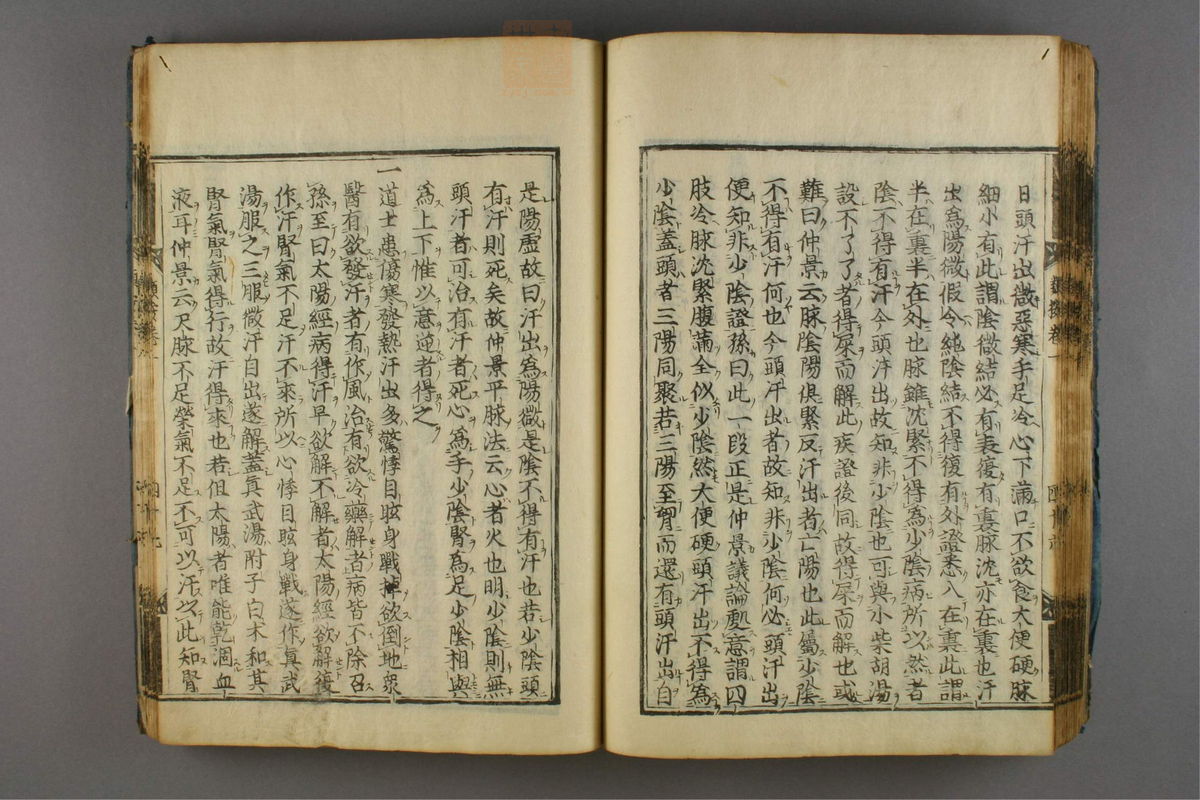 日頭汗出微惡寒手足冷心下滿口不欲食大便硬脉
細小有此謂陰微結必有表復有裏脉沈亦在裏也汗
出為陽微假令純陰結不得復有外證悉入在裏此謂
半在裏半在外也脉雖沈緊不得為少陰病所以然者
陰不得有汗今頭汗出故知非少陰也可與小柴胡湯
設不了了者得屎而解此疾證後同故得屎而解也或
難曰仲景云脉陰陽俱緊反汗出者亡陽也此屬少陰
不得有汗何也今頭汗出者故知非少陰何必頭汗出
便知非少陰證孫曰此一段正是仲景議論處意謂四
肢冷脉沈緊腹滿全似少陰然大便硬頭汗出不得為
少陰蓋頭者三陽同聚若三陽至胷而還有頭汗出自
是陽虛故曰汗出為陽微是陰不得有汗也若少陰頭
有汗則死矣故仲景平脉法云心者火也明少陰則無
頭汗者可治有汗者死心為手少陰腎為足少陰相與
為上下惟以意逆者得之
一道士患傷寒發熱汗出多驚悸目眩身戰掉欲倒地衆
醫有欲發汗者有作風治有欲冷藥解者病皆不除召
孫至曰太陽經病得汗早欲解不解者太陽經欲解復
作汗腎氣不足汗不來所以心悸目眩身戰遂作眞武
湯服之三服微汗自出遂解蓋眞武湯附子白朮和其
腎氣腎氣得行故汗得來也若但太陽者唯能乾涸血
液耳仲景云尺脉不足榮氣不足不可以汗以此知腎